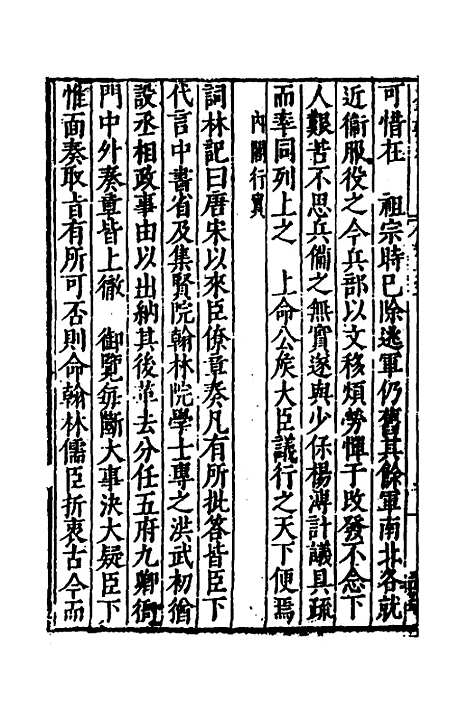 可惜在　祖宗時已除逃軍仍舊其餘軍南北各就
近衞服役之令兵部以文移煩勞憚于改發不念下
人艱苦不思兵備之無實遂與少保楊溥計議具疏
而率同列上之　上命公矦大臣議行之天下便焉
內閣行實
詞林記曰唐宋以來臣僚章奏凡有所批答皆臣下
代言中書省及集賢院翰林院學士專之洪武初猶
設丞相政事由以出納其後革去分任五府九卿衙
門中外奏章皆上徹　御覽每斷大事決大疑臣下
惟面奏取旨有所可否則命翰林儒臣折衷古今而